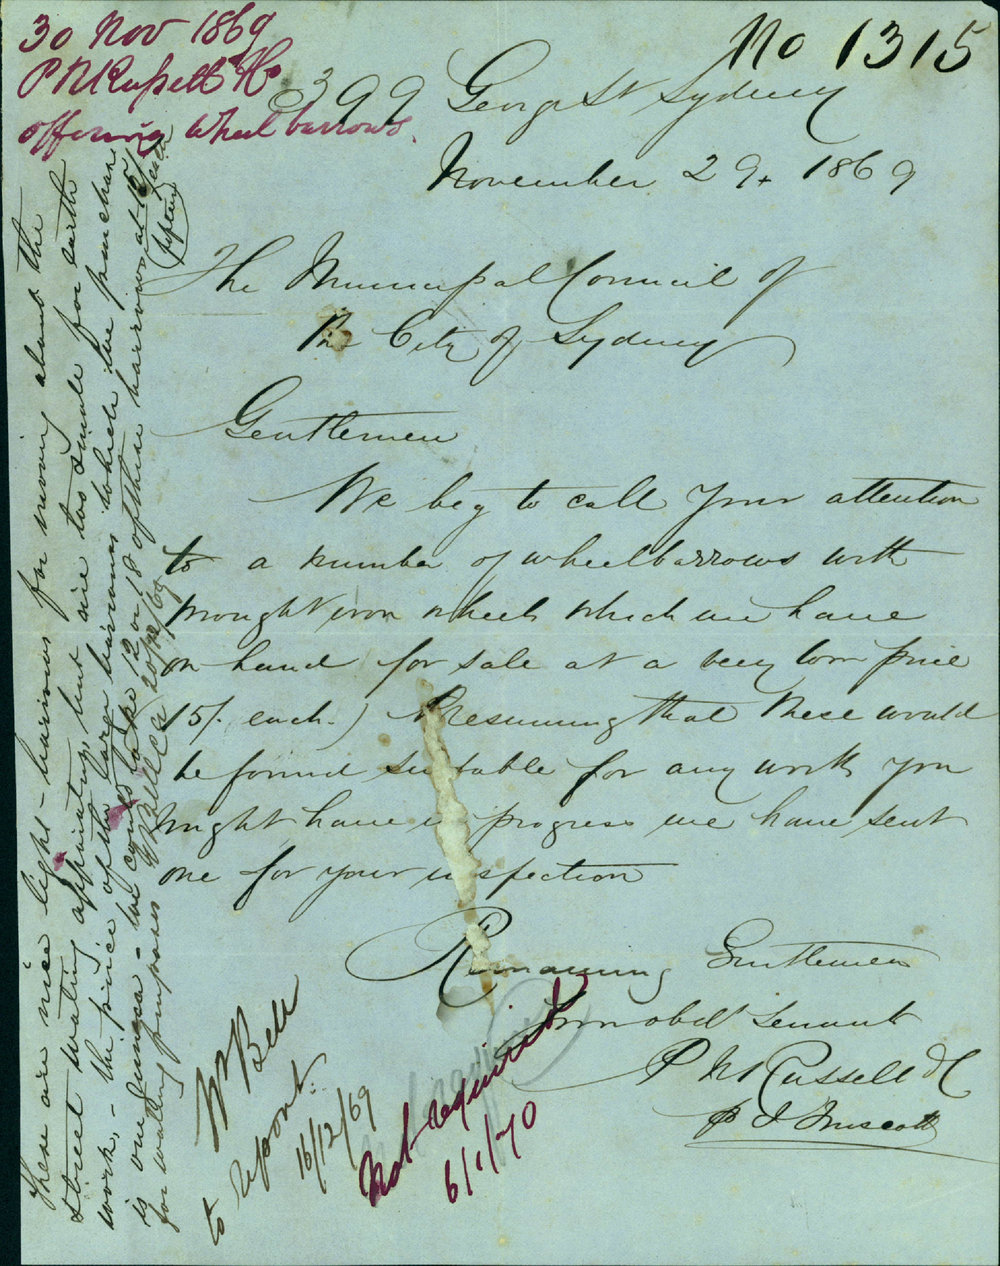 30 Nov 1869
P N Russell & Co
offering wheelbarrows.
No 1315
399 George St Sydney
November 29. 1869
The Municipal Council of
The City of Sydney
Gentlemen
We beg to call your attention
to a number of wheelbarrows with
wrought iron wheels which we have
on hand for sale at a very low price
15/. each.) Presuming that these would
be found suitable for any work you
might have in progress we have sent
one for your inspection
Remaining Gentlemen
Your obdt Servants
P N Russell & Co
p J Truscott
These are nice light barrows for moving about the
street watering apparatus, but are too small for earth
work, - the price of the large barrows which we purchase
is one guinea - we could take 12 or 18 of these barrows at 15/ each
(fifteen)
for watering purposes
20/12/69
W Bell
to report.
16/12/69
Not required
6/1/70